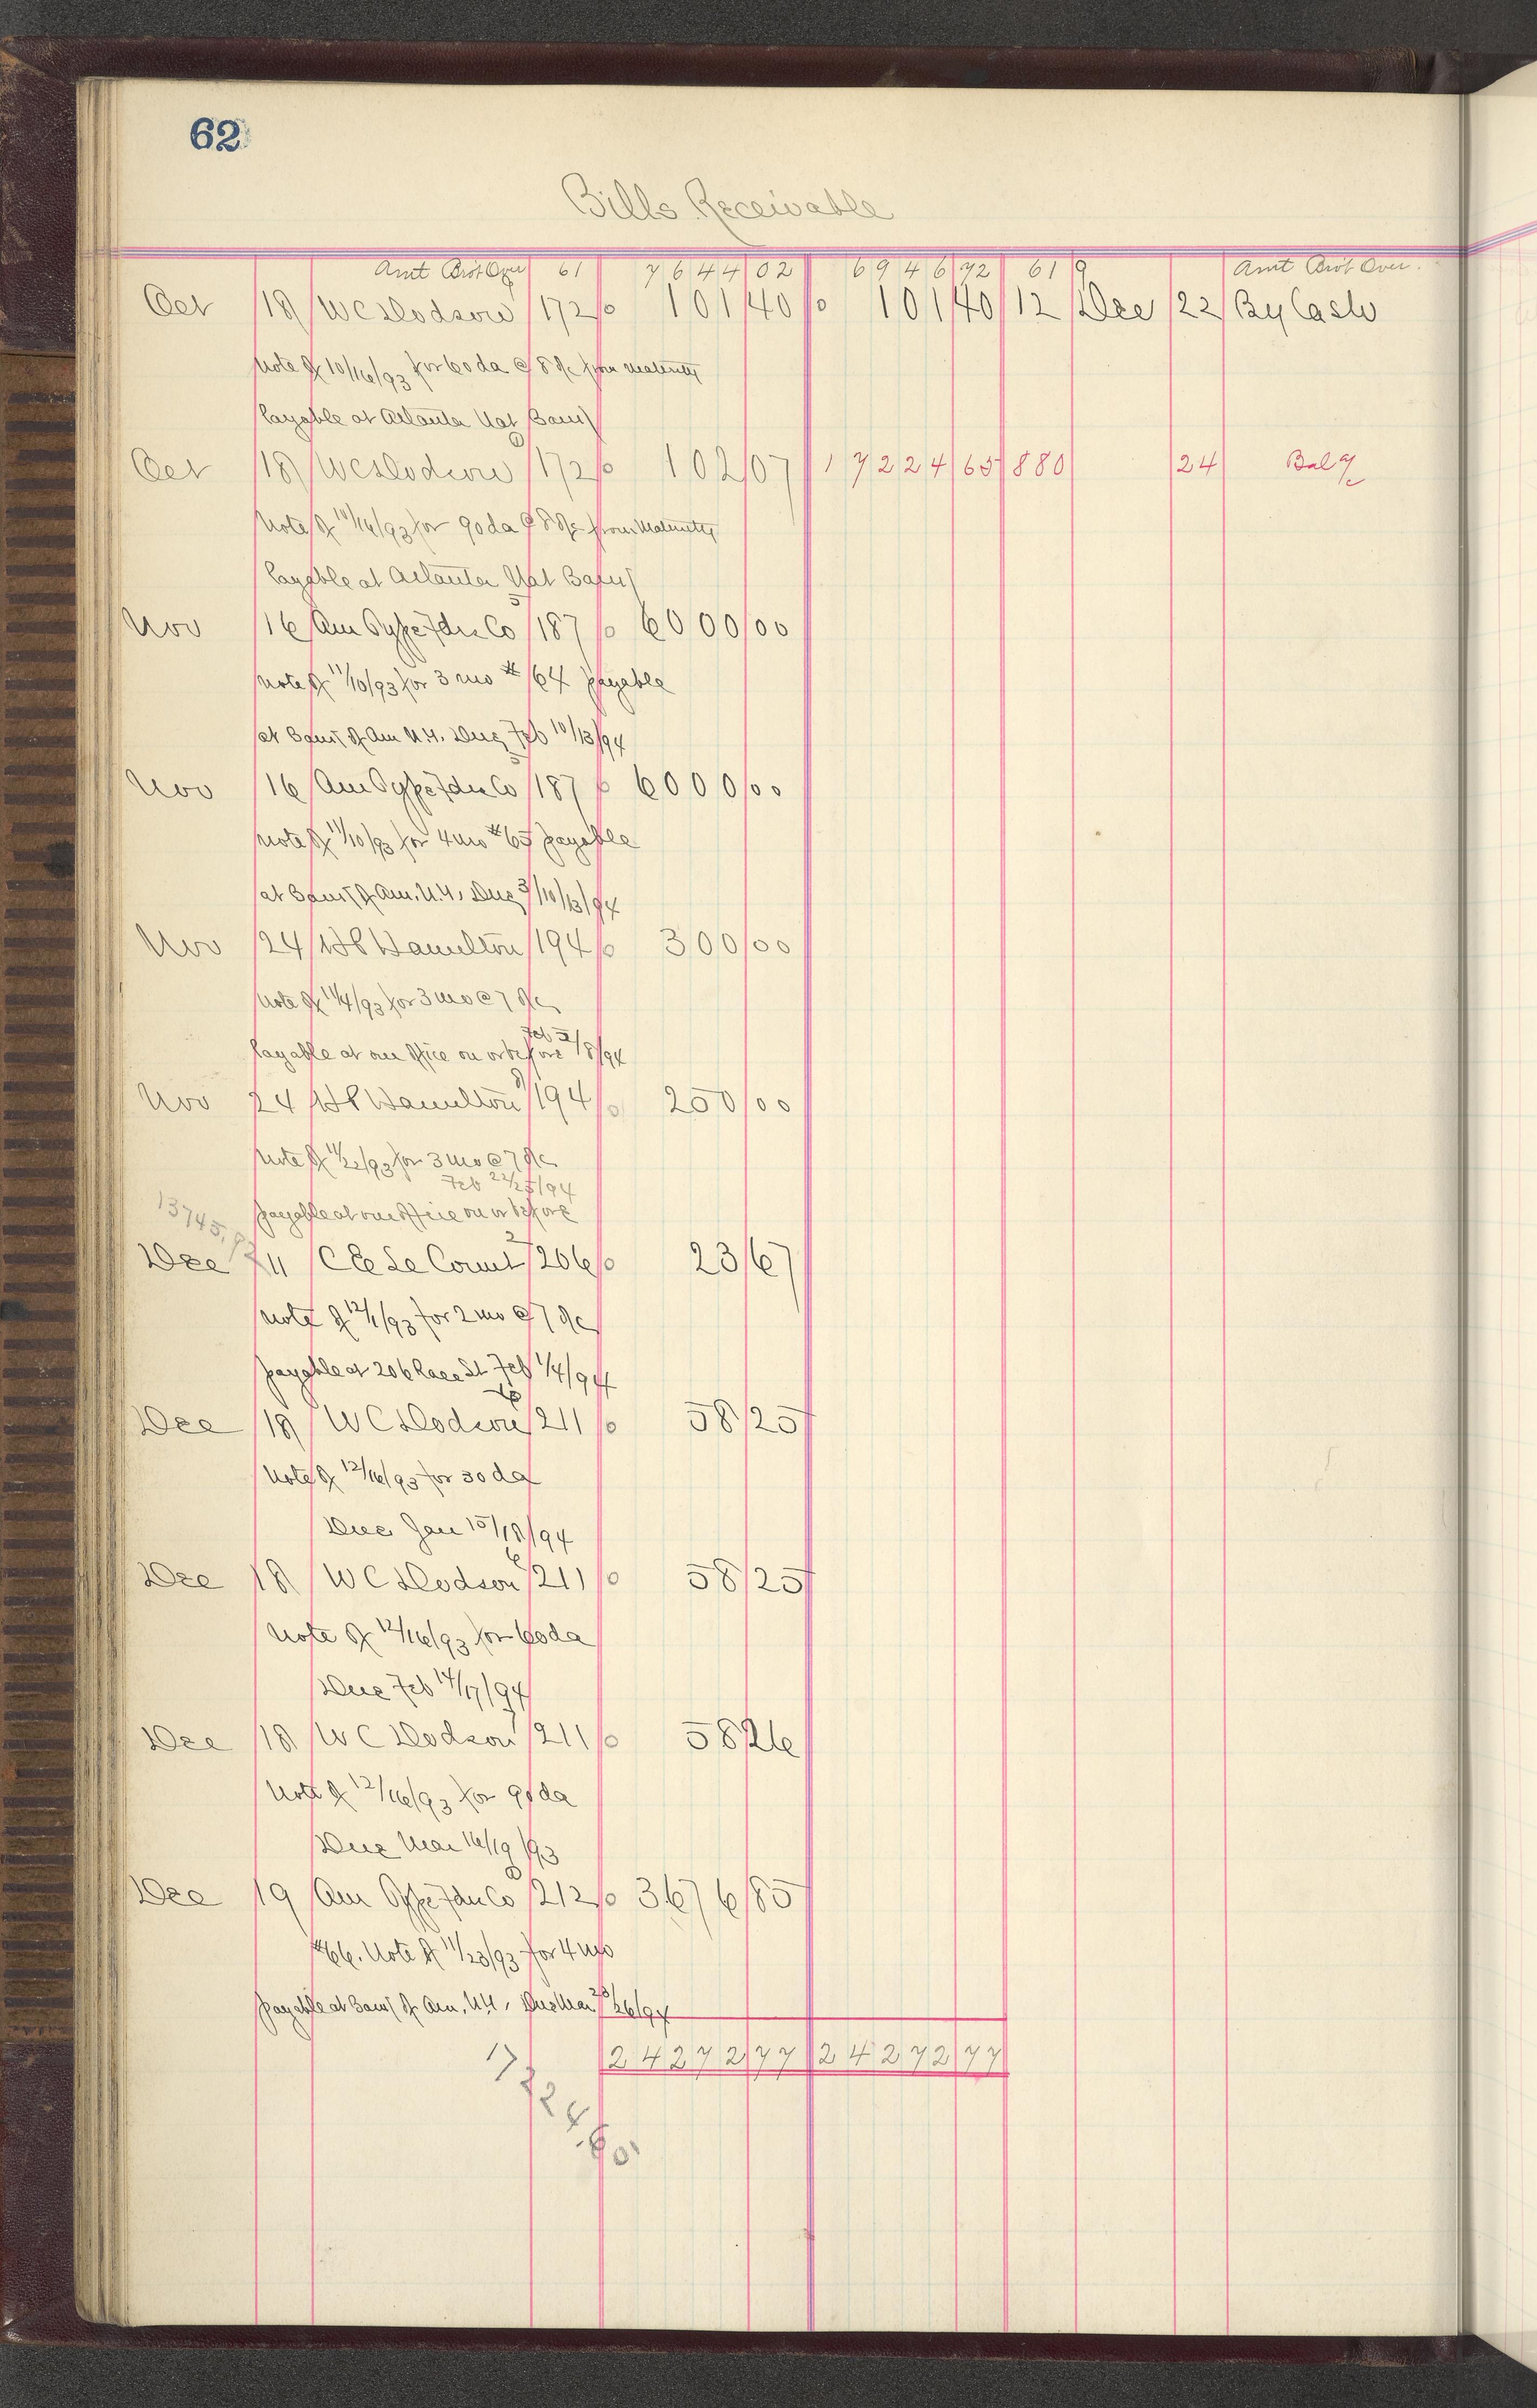 62
Bills Receivable
Amt Brot Over 61 7644 02 6946 72 61 Amt Brot Over
Oct 18 W C Dodson 172 101 40 101 40 12 Dec 22 By Cash
Note of 10/16/93 for 60 da @ 8 % from maturity
payable at Atlanta Nat Bank
Oct 18 W C Dodson 172 102 07 17224 65 880 24 Bal a/c
Note of 10/16/93 for 90 da @ 8 % from Maturity
payable at Atlanta Nat Bank
Nov 16 Am Type Fdrs Co 187 6000 00
Note of 11/10/93 for 3 mo # 64 payable
at Bank of Am N.Y. Due Feb 10/13/94
Nov 16 Am Type Fdrs Co 187 6000 00
Note of 11/10/93 for 4 mo # 65 payable
at Bank of Am. N.Y. Due 3/10/13/94
Nov 24 Hamilton 194 300 00
Note of 11/4/93 for 3 mo @ 7 %
Feb 5/8/94
payable at our office on or before
Nov 24 Hamilton 194 250 00
Note of 11/22/93 for 3 mo @ 7 %
Feb 22/25/94
payable at our office on or before
13745.
Dec 11 C E Le Count 206 23 67
Note of 12/1/93 for 2 mo @ 7 %
payable at 206 Race St Feb 1/4/94
Dec 18 W C Dodson 211 58 25
Note of 12/16/93 for 30 da
Due Jan 15/18/94
Dec 18 W C Dodson 211 58 25
Note of 12/16/93 for 60 da
Due Feb 14/17/94
Dec 18 W C Dodson 211 58 26
Note of 12/16/93 for 90 da
Due Mar 16/19/93
Dec 19 Am Type Fdrs Co 212 3676 85
#66. Note of 11/23/93 for 4 mo
payable at Bank of Am. N.Y. Due Mar 23/26/94
24272 77 24272 77